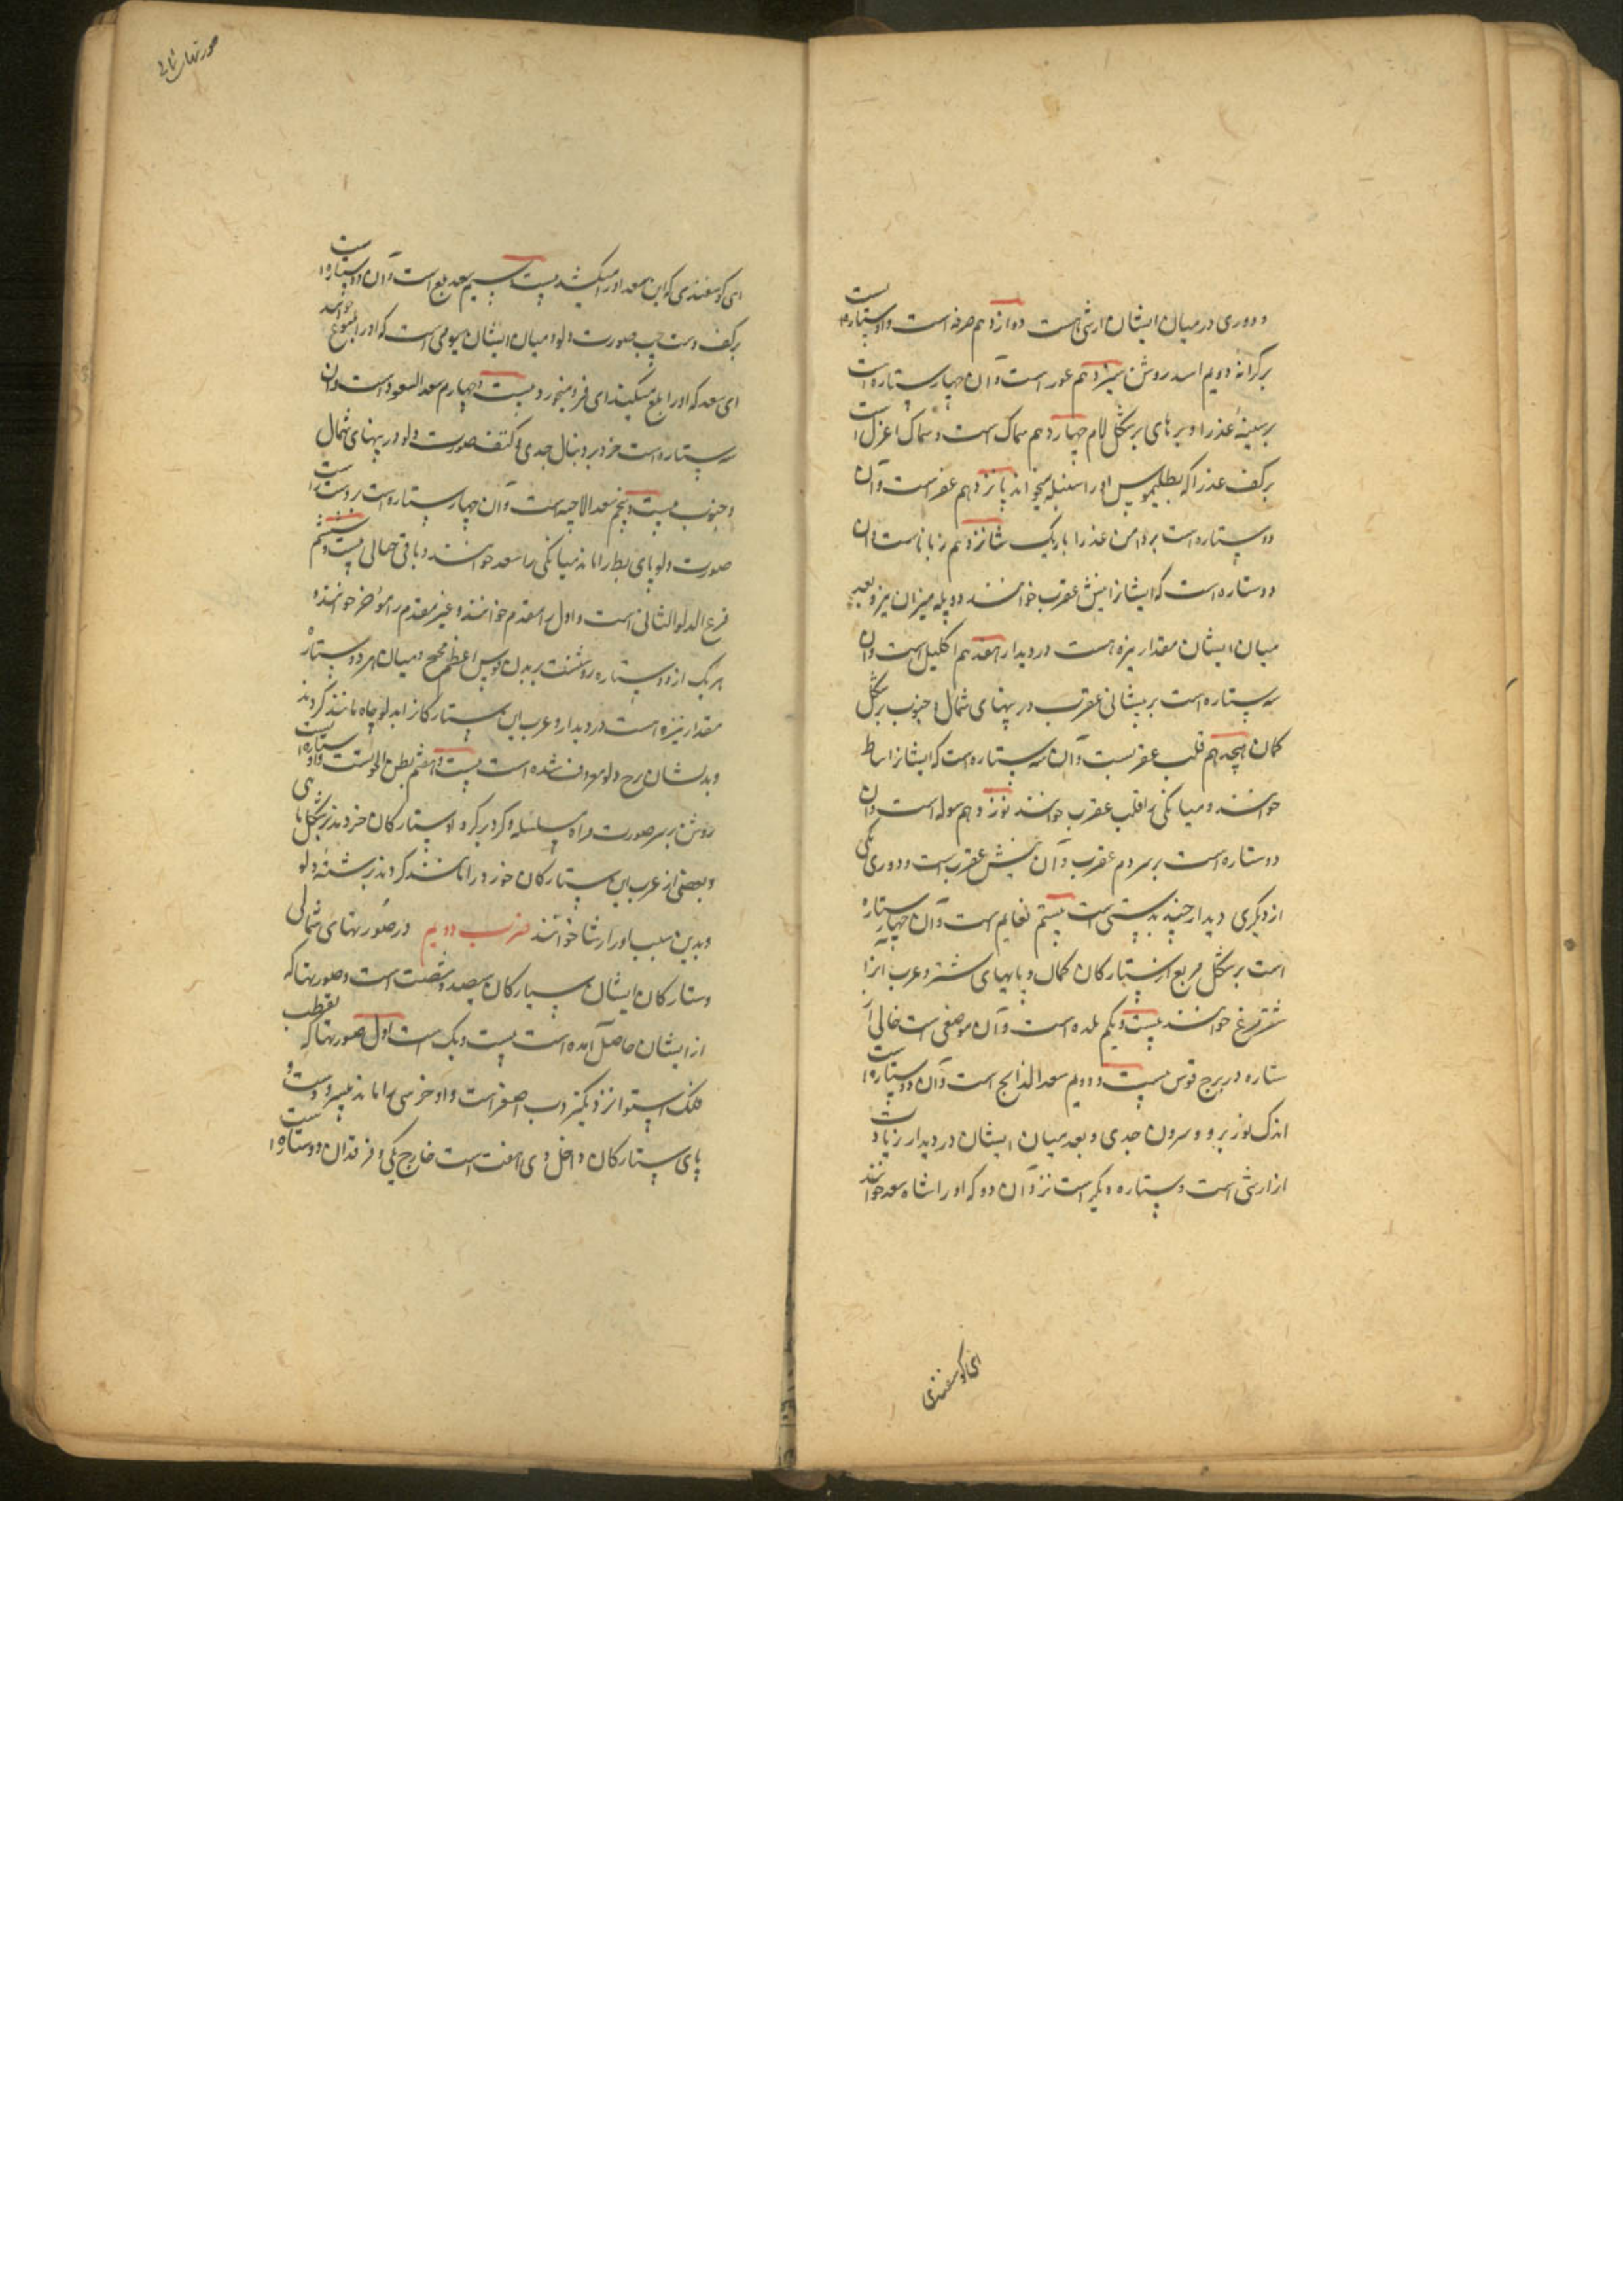 و دوری در میان ایشان ارشی است دوازدهم صرفه است و او ستاره است
بر کرانه دویم اسد روشن سیزدهم عور است و آن چهار ستاره است
بر سینهٔ عذرا و بر های بر شکل لام چهاردهم سماک است و سماک اعزل است
بر کف عذرا که بطلیموس او را سنبله میخواند پانزدهم غفر است و آن
دو ستاره است بر دامن عذرا باریک شانزدهم زبانا است و آن
دو ستاره است که ایشانرا نیش عقرب خوانند دو پله میزان نیز و بعد
میان ایشان مقدار نیزه است در دیدار هفدهم اکلیل است و آن
سه ستاره است بر پیشانی عقرب در پهنای شمال و جنوب بر شکل
کمان هیجدهم قلب عقربست و آن سه ستاره است که ایشانرا نیاط
خوانند و میانکی را قلب عقرب خوانند نوزدهم سوله است و آن
دو ستاره است بر سر دم عقرب و آن نیش عقرب است و دوری یکی
از دیکری دیدار چند بدستی است بیستم نعایم است و آن چهار ستاره
است بر شکل مربع از ستارکان کمال و پایهای شتر و عرب آنرا
شتر مرغ خوانند بیست و یکم بلده است و آن موضعی است خالی از
ستاره در برج قوس بیست و دویم سعد الذابح است و آن دو ستاره است
اندک نور بر دو سرون جدی و بعد میان ایشان در دیدار زیادت
از ارشی است و ستاره دیکر است نزد آن دو که او را شاه سعد خوانند
ای کوسفندی
صورتهای شمالی
ای کوسفندی که این سعد او را میکشد بیست و سیم سعد بلع است و آن دو ستاره است
بر کف دست چپ صورت دلو و میان ایشان سیومی است که او را مبلوع خوانند
ای سعد که او را بلع میکند ای فرو میخورد بیست و چهارم سعد السعود است و آن
سه ستاره است خرد بر دنبال جدی و کتف صورت دلو در پهنای شمال
و جنوب بیست و پنجم سعد الاخبیه است و آن چهار ستاره است بر دست راست
صورت دلو پای بط را ماند میانکی را سعد خوانند و باقی خبالی بیست و ششم
فرغ الدلو الثانی است و اول را مقدم خوانند و غیر مقدم را مؤخر خوانند و
هر یک از دو ستاره روشنست بر بدن فرس اعظم مجنح و میان هر دو ستاره
مقدار نیزه است در دیدار و عرب این ستارکانرا بدلو چاه مانند کردند
و بدیشان برج دلو معروف شده است بیست و هفتم بطن الحوتست و او ستاره است
روشن بر سر صورت مراه سلسله و کرد بر کرد او ستارکان خردند بر شکل ماهی
و بعضی از عرب این ستارکان خورد را مانند کردند بر شتهٔ دلو
و بدین سبب او را رشا خوانند ضرب دویم در صورتهای شمالی
و ستارکان ایشان سیارکان سیصد و شصت است و صورتها که
از ایشان حاصل آمده است بیست و یک است اول صورتها که بقطب
فلک استوا نزدیکتر دب اصغر است و او خرسی را ماند بسر و دست و
پای ستارکان داخل وی هفت است خارج یکی و فرقدان دو ستاره است